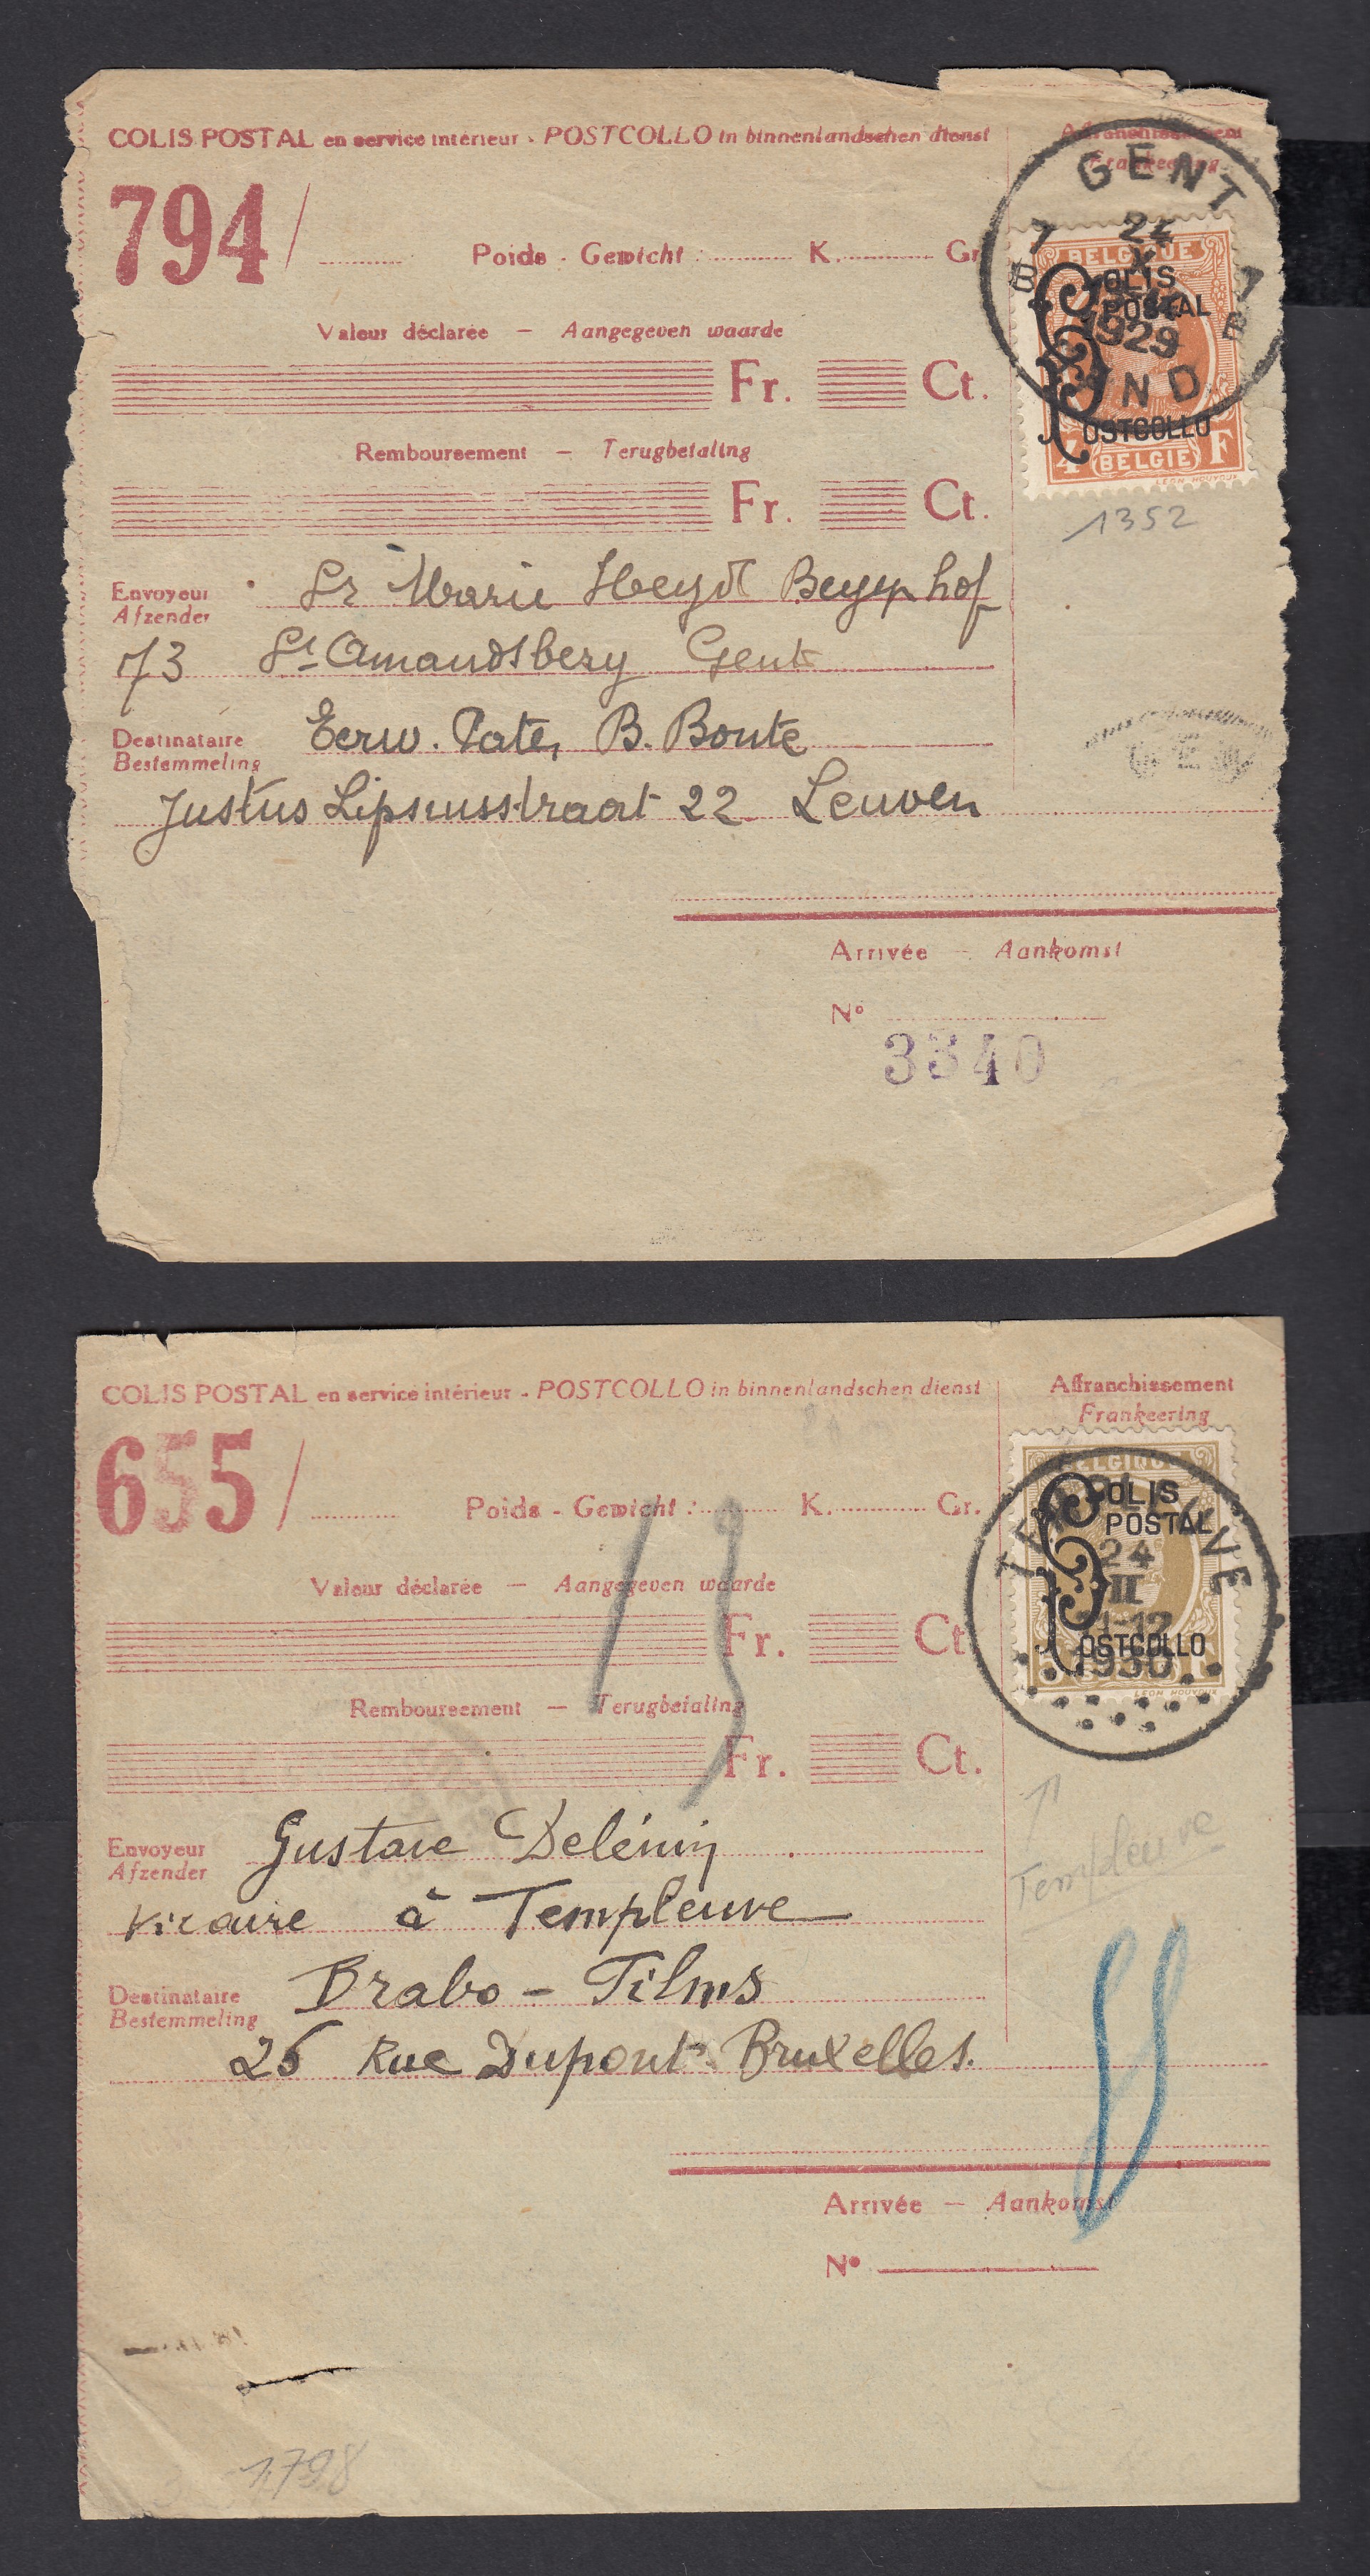 COLIS POSTAL en service intérieur - POSTCOLLO in binnenlandschen dienst
Affranchissement
Frankeering
794/
Poids - Gewicht : K. Gr.
GENT
7 24 7
B X B
1929
GAND
BELGIQUE
COLIS
POSTAL
POSTCOLLO
4 (BELGIE) F
LEON HOUYOUX
1352
Valeur déclarée — Aangegeven waarde
Fr. Ct.
Remboursement — Terugbetaling
Fr. Ct.
Envoyeur
Afzender
Sr Marie
73 St Amandsberg Gent
Destinataire
Bestemmeling
Eerw. Pater B. Bonte
Justus Lipsiusstraat 22 Leuven
Arrivée — Aankomst
N°
3340
COLIS POSTAL en service intérieur - POSTCOLLO in binnenlandschen dienst
Affranchissement
Frankeering
655/
Poids - Gewicht : K. Gr.
BELGIQUE
COLIS
POSTAL
POSTCOLLO
LEON HOUYOUX
TEMPLEUVE
24
II
11-12
1930
Valeur déclarée — Aangegeven waarde
Fr. Ct.
Remboursement — Terugbetaling
Fr. Ct.
Envoyeur
Afzender
Gustave
Vicaire à Templeuve
Templeuve
Destinataire
Bestemmeling
Brabo - Films
26 Rue Dupont Bruxelles.
Arrivée — Aankomst
N°
1798